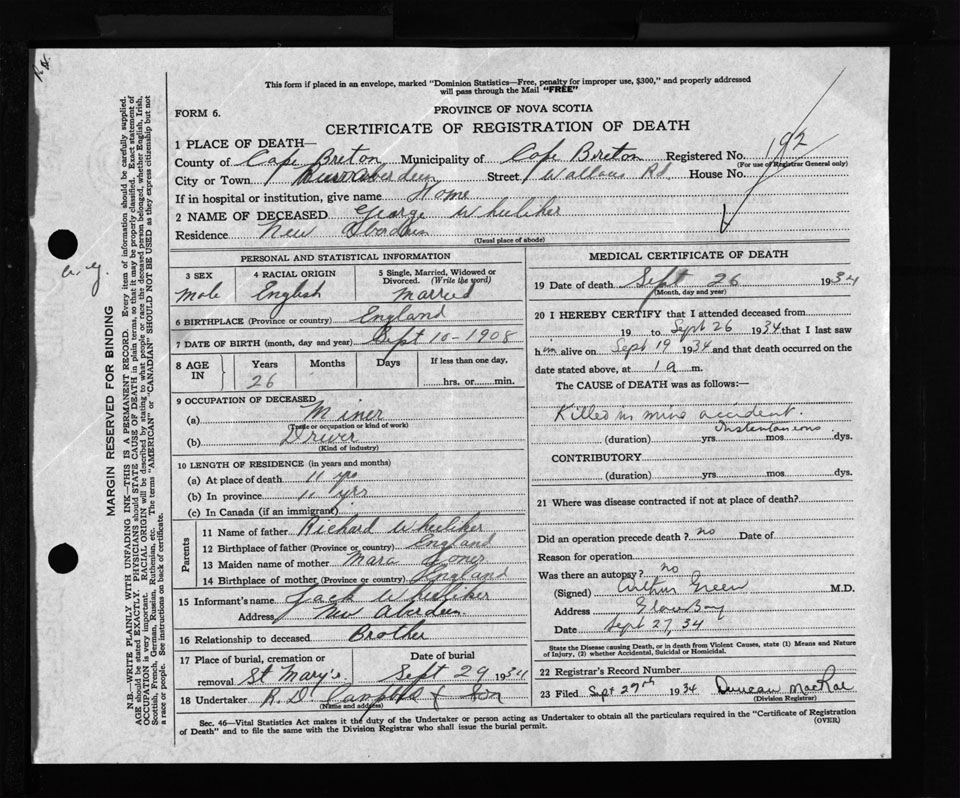 This form if placed in an envelope, marked "Dominion Statistics—Free, penalty for improper use, $300," and properly addressed
will pass through the Mail "FREE"
FORM 6.
PROVINCE OF NOVA SCOTIA
CERTIFICATE OF REGISTRATION OF DEATH
1 PLACE OF DEATH—
County of Cape Breton Municipality of Cape Breton Registered No. 192
(For use of Registrar General only)
City or Town Street Wallace Rd House No.
If in hospital or institution, give name Home
2 NAME OF DECEASED George Wheeliker
Residence New Aberdeen
(Usual place of abode)
PERSONAL AND STATISTICAL INFORMATION
3 SEX 4 RACIAL ORIGIN 5 Single, Married, Widowed or Divorced. (Write the word)
Male English Married
6 BIRTHPLACE (Province or country) England
7 DATE OF BIRTH (month, day and year) Sept 10-1908
8 AGE IN Years Months Days If less than one day,
26 hrs. or min.
9 OCCUPATION OF DECEASED
(a) Miner
(Trade or occupation or kind of work)
(b) Driver
(Kind of industry)
10 LENGTH OF RESIDENCE (in years and months)
(a) At place of death 11 yrs
(b) In province 11 yrs
(c) In Canada (if an immigrant)
Parents
11 Name of father Richard Wheeliker
12 Birthplace of father (Province or country) England
13 Maiden name of mother
14 Birthplace of mother (Province or country) England
15 Informant's name Jack Wheeliker
Address New Aberdeen
16 Relationship to deceased Brother
17 Place of burial, cremation or removal Date of burial
St Mary's. Sept 29 1934
18 Undertaker R. D. & Son
(Name and address)
MEDICAL CERTIFICATE OF DEATH
19 Date of death Sept 26 1934
(Month, day and year)
20 I HEREBY CERTIFY that I attended deceased from
19 to Sept 26 1934 that I last saw
him alive on Sept 19 1934 and that death occurred on the
date stated above, at 1 a m.
The CAUSE OF DEATH was as follows:—
Killed in mine accident.
Instantaneous.
(duration) yrs mos dys.
CONTRIBUTORY
(duration) yrs mos dys.
21 Where was disease contracted if not at place of death?
Did an operation precede death? no Date of
Reason for operation
Was there an autopsy? no
(Signed) Arthur Green M.D.
Address Glace Bay
Date Sept 27, 34
State the Disease causing Death, or in death from Violent Causes, state (1) Means and Nature
of Injury, (2) whether Accidental, Suicidal or Homicidal.
22 Registrar's Record Number
23 Filed Sept 27th 1934 Duncan MacRae
(Division Registrar)
Sec. 46—Vital Statistics Act makes it the duty of the Undertaker or person acting as Undertaker to obtain all the particulars required in the "Certificate of Registration
of Death" and to file the same with the Division Registrar who shall issue the burial permit. (OVER)
MARGIN RESERVED FOR BINDING
N.B.—WRITE PLAINLY WITH UNFADING INK—THIS IS A PERMANENT RECORD. Every item of information should be carefully supplied.
AGE should be stated EXACTLY. PHYSICIANS should STATE CAUSE OF DEATH in plain terms, so that it may be properly classified. Exact statement of
OCCUPATION is very important. RACIAL ORIGIN will be described by stating to what people or race the deceased person belonged, whether English, Irish,
Scottish, French, German, Russian, Ruthenian, etc. The terms "AMERICAN" or "CANADIAN" SHOULD NOT BE USED as they express citizenship but not
a race or people. See instructions on back of certificate.